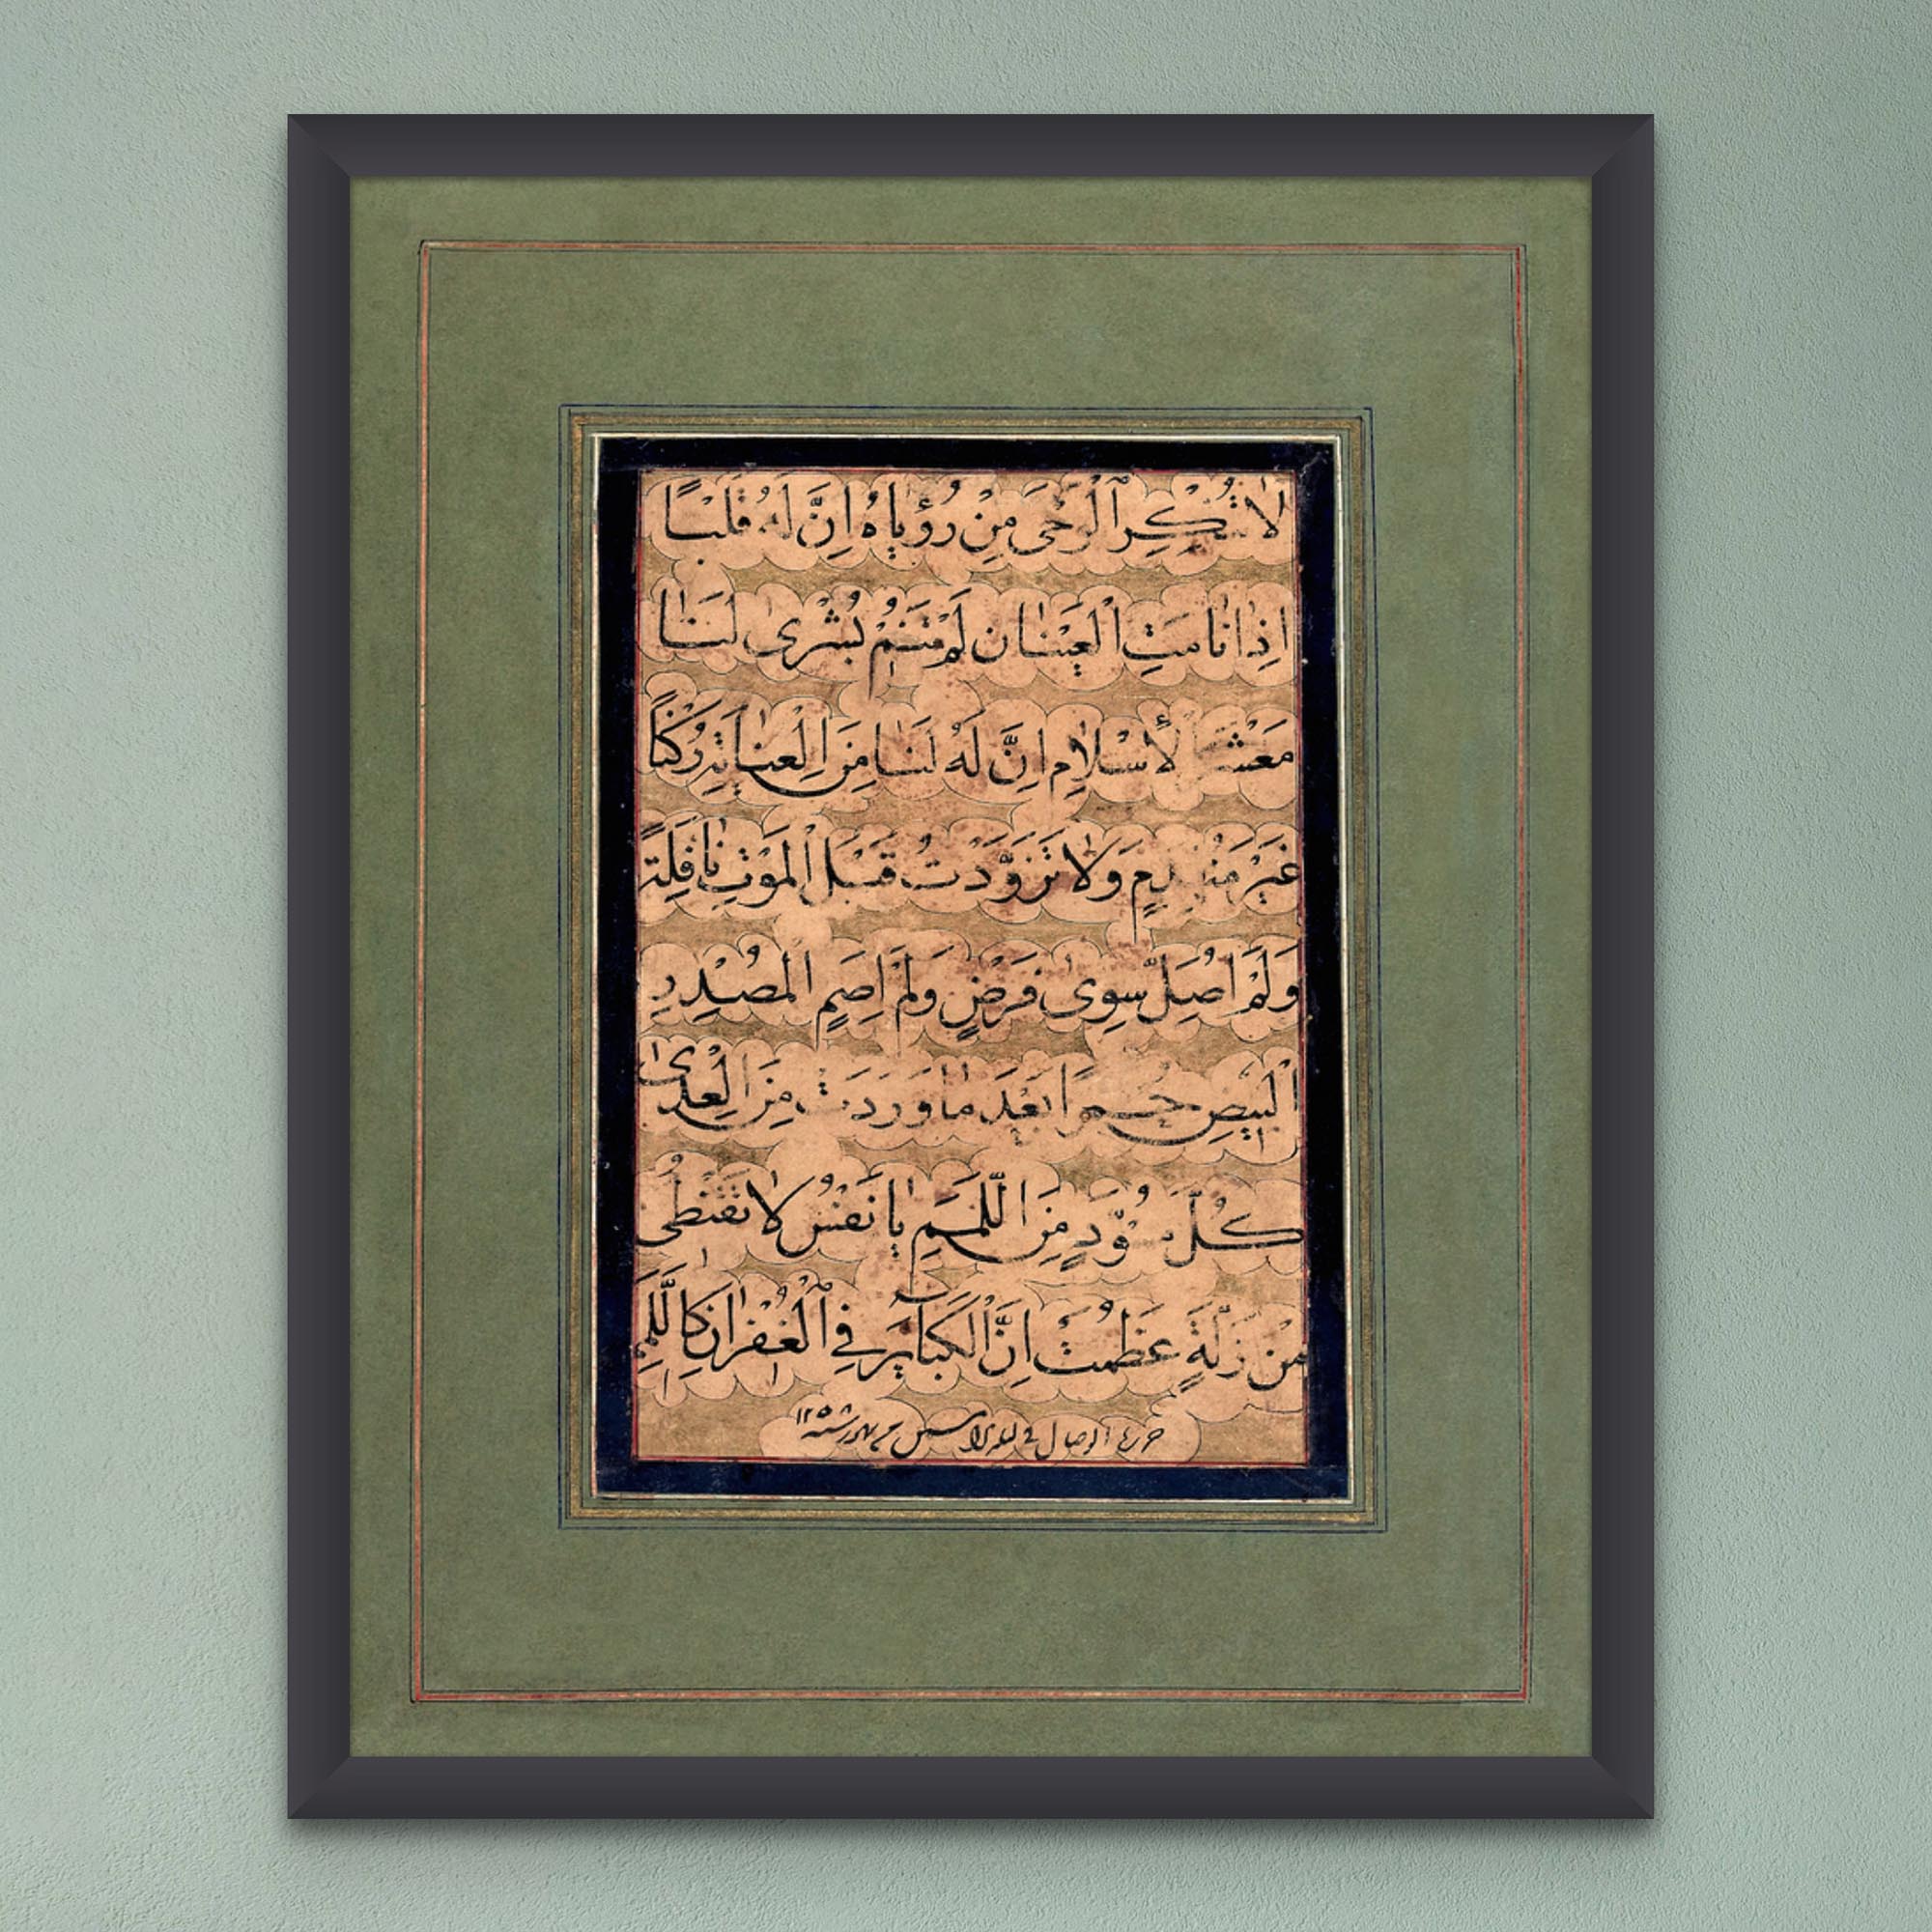 لَا تُنْكِرِ الْوَحْيَ مِنْ رُؤْيَاهُ اِنَّ لَهُ قَلْبًا
اِذَا نَامَتِ الْعَيْنَانِ لَمْ يَنَمْ بُشْرَى لَنَا
مَعْشَرَ الْأِسْلَامِ اِنَّ لَهُ لَنَا مِنَ الْعِنَايَةِ رُكْنًا
غَيْرَ مُنْهَدِمٍ وَلَا تَزَوَّدْتُ قَبْلَ الْمَوْتِ نَافِلَةً
وَلَمْ اُصَلِّ سِوَى فَرْضٍ وَلَمْ اَصُمِ الْمُصْدِرِ
الْبِيضِ حُمْرًا بَعْدَ مَا وَرَدَتْ مِنَ الْعِدَى
كُلَّ مُسْوَدٍّ مِنَ اللِّمَمِ يَا نَفْسُ لَا تَقْنَطِي
مِنْ زَلَّةٍ عَظُمَتْ اِنَّ الْكَبَآئِرَ فِي الْغُفْرَانِ كَاللَّمَمِ
الوصال في سنه ١٢٥